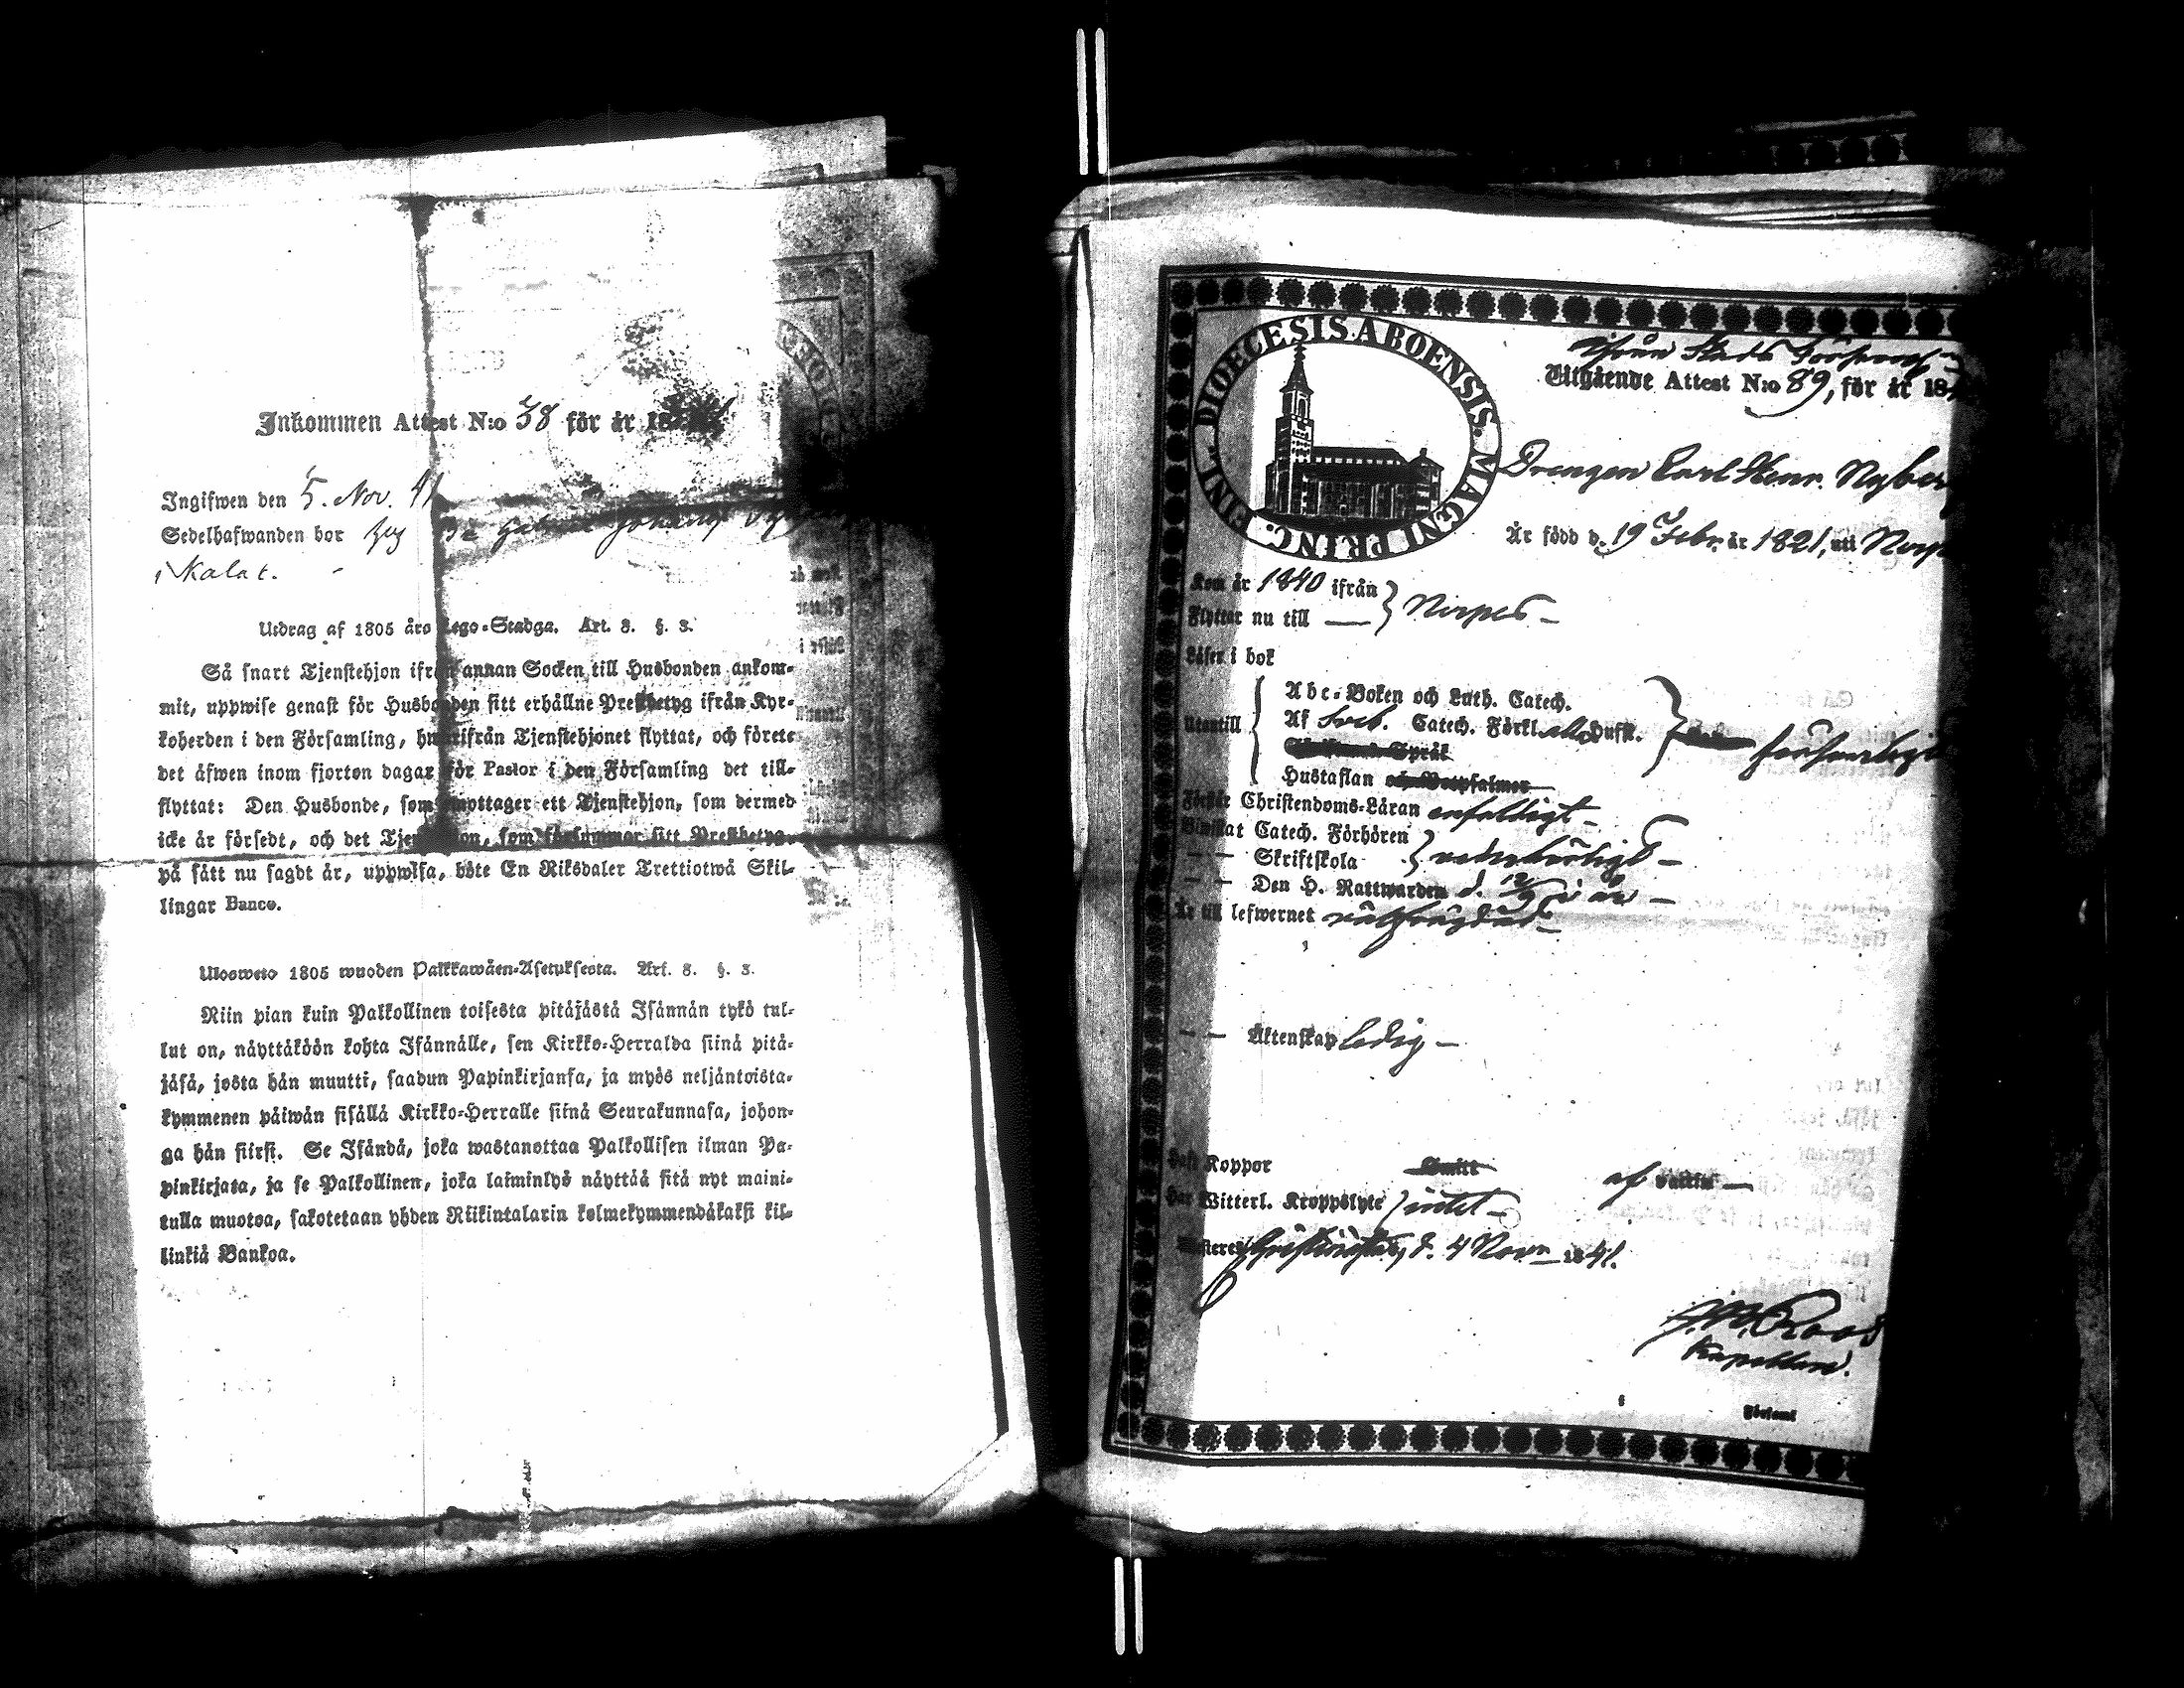 Inkommen Attest N:o 38 för år 18
Ingifwen den 5. Nov. 41
Sedelhafwanden bor hos Gabriel
i Kalax.
Utdrag af 1805 års Lego-Stadga. Art. 8. §. 3.
Så snart Tjenstehjon ifrån annan Socken till Husbonden ankom-
mit, uppwise genast för Husbonden sitt erhållne Prestbetyg ifrån Kyr-
koherden i den Församling, hwarifrån Tjenstehjonet flyttat, och förete
det äfwen inom fjorton dagar för Pastor i den Församling det till-
flyttat: Den Husbonde, som emottager ett Tjenstehjon, som dermed
icke är försedt, och det Tjenstehjon, som försummar sitt Prestbetyg,
på sätt nu sagdt är, uppwisa, böte En Riksdaler Trettiotwå Skil-
lingar Banco.
Ulosweto 1805 wuoden Palkkawäen-Asetuksesta. Art. 8. §. 3.
Niin pian kuin Palkollinen toisesta pitäjästä Isännän tykö tul-
lut on, näyttäköön kohta Isännälle, sen Kirkko-Herralda siinä pitä-
jäsä, josta hän muutti, saadun Papinkirjansa, ja myös neljäntoista-
kymmenen päiwän sisällä Kirkko-Herralle siinä Seurakunnasa, johon-
ga hän siirsi. Se Isändä, joka wastanottaa Palkollisen ilman Pa-
pinkirjata, ja se Palkollinen, joka laiminlyö näyttää sitä nyt maini-
tulla muotoa, sakotetaan yhden Riikintalarin kolmekymmendäkaksi kil-
linkiä Bankoa.
DIOECESIS ABOENSIS. MAGNI PRINC. FINL.
Utgående Attest N:o 89, för år 18
Drengen Carl Henr. Nyberg
Är född d. 19 Febr. år 1821, uti
Kom år 1840 ifrån
Flyttar nu till — } Nerpes —
Läser i bok
Utantill
Abc-Boken och Luth. Catech.
Af Sveb. Catech. Förkl. Hufst.
Språk
Hustaflan
försvarligt
Förstår Christendoms-Läran enfaldigt —
Biwistat Catech. Förhören
— — Skriftskola } vederbörligt —
— — Den H. Nattwarden d. 12/9 i år —
Är till lefwernet välfrägdad —
— — Äktenskap ledig —
Haft Koppor af vaccin —
Har Witterl. Kroppslyte intet —
Christinestad, d. 4 Novr 1841.
Roos
Kapellan.
Församl